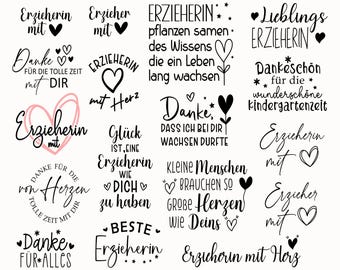 Erzieherin
mit
Erzieher
mit
ERZIEHERIN
pflanzen samen
des Wissens
die ein Leben
lang wachsen
Lieblings
ERZIEHERIN
Danke
FÜR DIE TOLLE ZEIT
mit DIR
ERZIEHERIN
mit Herz
DankeSchön
für die
wunderschöne
Kindergartenzeit
Erzieherin
mit
Glück
IST, EINE
Erzieherin
WIE
DICH
zu haben
Danke,
DASS ICH BEI DIR
WACHSEN DURFTE
Erzieherin
mit
DANKE FÜR DIE
von Herzen
TOLLE ZEIT MIT DIR
Kleine Menschen
BRAUCHEN SO
GROßE Herzen
WIE Deins
Erzieher
mit
Danke
FÜR ALLES
BESTE
Erzieherin
Erzieherin mit Herz